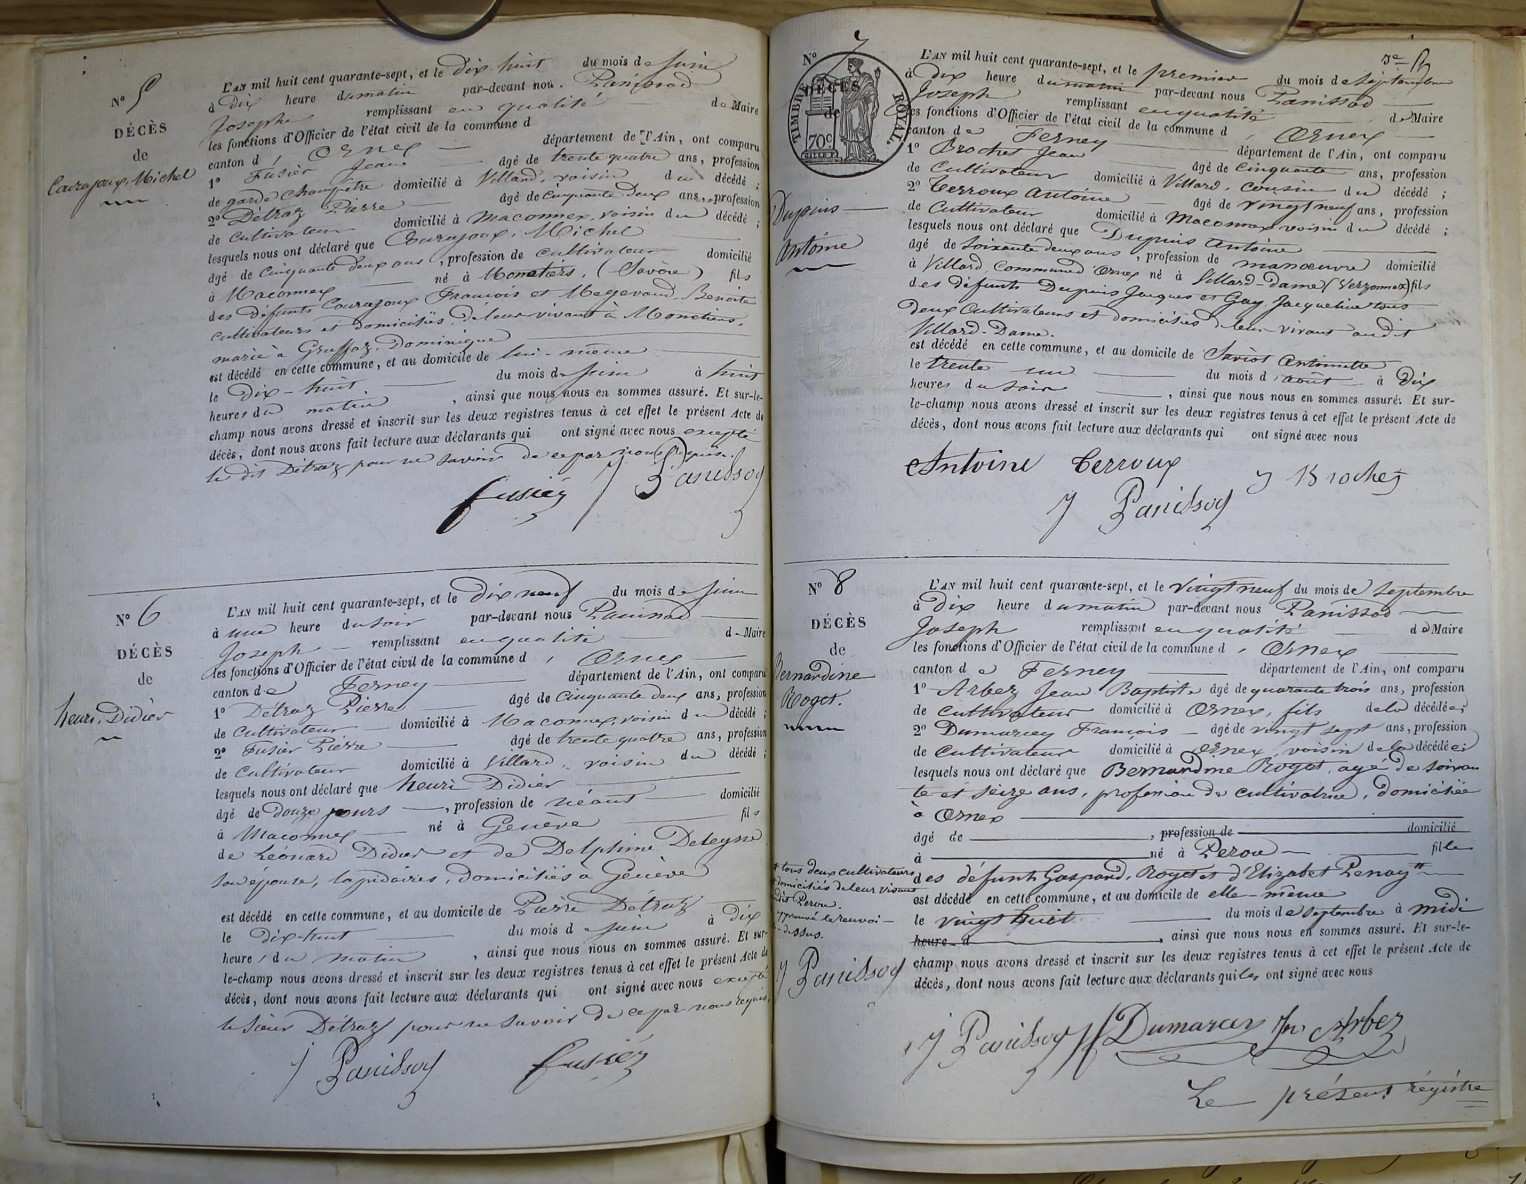 N° 5
DÉCÈS
de
Courajoux, Michel
L'AN mil huit cent quarante-sept, et le dix huit du mois de Juin
à Dix heure du matin par-devant nous Panissod
Joseph remplissant en qualité de Maire
les fonctions d'Officier de l'état civil de la commune d
canton d Ornex département de l'Ain, ont comparu
1° Fusier Jean âgé de trente quatre ans, profession
de garde champêtre domicilié à Villard, voisin du décédé ;
2° Détraz Pierre âgé de Cinquante deux ans, profession
de Cultivateur domicilié à Maconnex, voisin du décédé ;
lesquels nous ont déclaré que Courajoux, Michel
âgé de Cinquante deux ans, profession de cultivateur domicilié
à Maconnex né à Monetiers, (Savoie) fils
des défunts Courajoux François et Megevand Benoite
cultivateurs et domiciliés de leur vivant à Monetiers,
marié à Gruffaz, Dominique
est décédé en cette commune, et au domicile de lui-même
le Dix-huit du mois de Juin à huit
heures du matin, ainsi que nous nous en sommes assuré. Et sur-le-
champ nous avons dressé et inscrit sur les deux registres tenus à cet effet le présent Acte de
décès, dont nous avons fait lecture aux déclarants qui ont signé avec nous excepté
le dit Détraz pour ne savoir de ce par nous requis.
Fusier J Panissod
N° 6
DÉCÈS
de
henri Didier
L'AN mil huit cent quarante-sept, et le dix neuf du mois de Juin
à une heure du soir par-devant nous Panissod
Joseph remplissant en qualité de Maire
les fonctions d'Officier de l'état civil de la commune d' Ornex
canton de Ferney département de l'Ain, ont comparu
1° Détraz Pierre âgé de Cinquante deux ans, profession
de Cultivateur domicilié à Maconnex, voisin du décédé ;
2° Fusier Pierre âgé de trente quatre ans, profession
de Cultivateur domicilié à Villard, voisin du décédé ;
lesquels nous ont déclaré que henri Didier
âgé de Douze jours, profession de néant domicilié
à Maconnex né à Genève fils
de Léonard Didier et de Delphine
son épouse, lapidaires, domiciliés à Genève
est décédé en cette commune, et au domicile de Pierre Détraz
le Dix-huit du mois de Juin à dix
heures du matin, ainsi que nous nous en sommes assuré. Et sur-
le-champ nous avons dressé et inscrit sur les deux registres tenus à cet effet le présent Acte de
décès, dont nous avons fait lecture aux déclarants qui ont signé avec nous excepté
le Sieur Détraz pour ne savoir de ce par nous requis.
J Panissod Fusier
N° 7
DÉCÈS
de
TIMBRE ROYAL.
70c
Dupuis
Antoine
L'AN mil huit cent quarante-sept, et le premier du mois de Septembre
à Dix heure du matin par-devant nous Panissod
Joseph remplissant en qualité de Maire
les fonctions d'Officier de l'état civil de la commune d' Ornex
canton de Ferney département de l'Ain, ont comparu
1° Brochet Jean âgé de Cinquante ans, profession
de Cultivateur domicilié à Villard, cousin du décédé ;
2° Terroux Antoine âgé de vingt neuf ans, profession
de Cultivateur domicilié à Maconnex, voisin du décédé ;
lesquels nous ont déclaré que Dupuis Antoine
âgé de soixante deux ans, profession de manœuvre domicilié
à Villard Commune d'Ornex né à Villard-Dame (Versonnex) fils
des défunts Dupuis Jacques et Gay Jacqueline tous
deux Cultivateurs et domiciliés de leur vivant audit
Villard-Dame.
est décédé en cette commune, et au domicile de Antoinette
le trente un du mois d'août à Dix
heures du soir, ainsi que nous nous en sommes assuré. Et sur-
le-champ nous avons dressé et inscrit sur les deux registres tenus à cet effet le présent Acte de
décès, dont nous avons fait lecture aux déclarants qui ont signé avec nous
Antoine Terroux J Brochet
J Panissod
N° 8
DÉCÈS
de
Bernardine
Roget.
L'AN mil huit cent quarante-sept, et le vingt neuf du mois de Septembre
à Dix heure du matin par-devant nous Panissod
Joseph remplissant en qualité de Maire
les fonctions d'Officier de l'état civil de la commune d' Ornex
canton de Ferney département de l'Ain, ont comparu
1° Arbez Jean Baptiste âgé de quarante trois ans, profession
de Cultivateur domicilié à Ornex, fils de la décédée ;
2° Dumarcey François âgé de vingt sept ans, profession
de Cultivateur domicilié à Ornex, voisin de la décédée ;
lesquels nous ont déclaré que Bernardine Roget, agé de soixan
te et seize ans, profession de cultivatrice, domiciliée
à Ornex
âgé de , profession de domicilié
à né à Perou fille
des défunts Gaspard Roget et d'Elizabet Penay
est décédé en cette commune, et au domicile de elle-même
le vingt huit du mois de Septembre à midi
heure d , ainsi que nous nous en sommes assuré. Et sur-le-
champ nous avons dressé et inscrit sur les deux registres tenus à cet effet le présent Acte de
décès, dont nous avons fait lecture aux déclarants qui les ont signé avec nous
tous deux cultivateurs
domiciliés de leur vivant
dit Perou.
approuvé le renvoi
ci-dessus.
J Panissod
J Panissod Dumarcey Jn Arbez
Le présent régistre